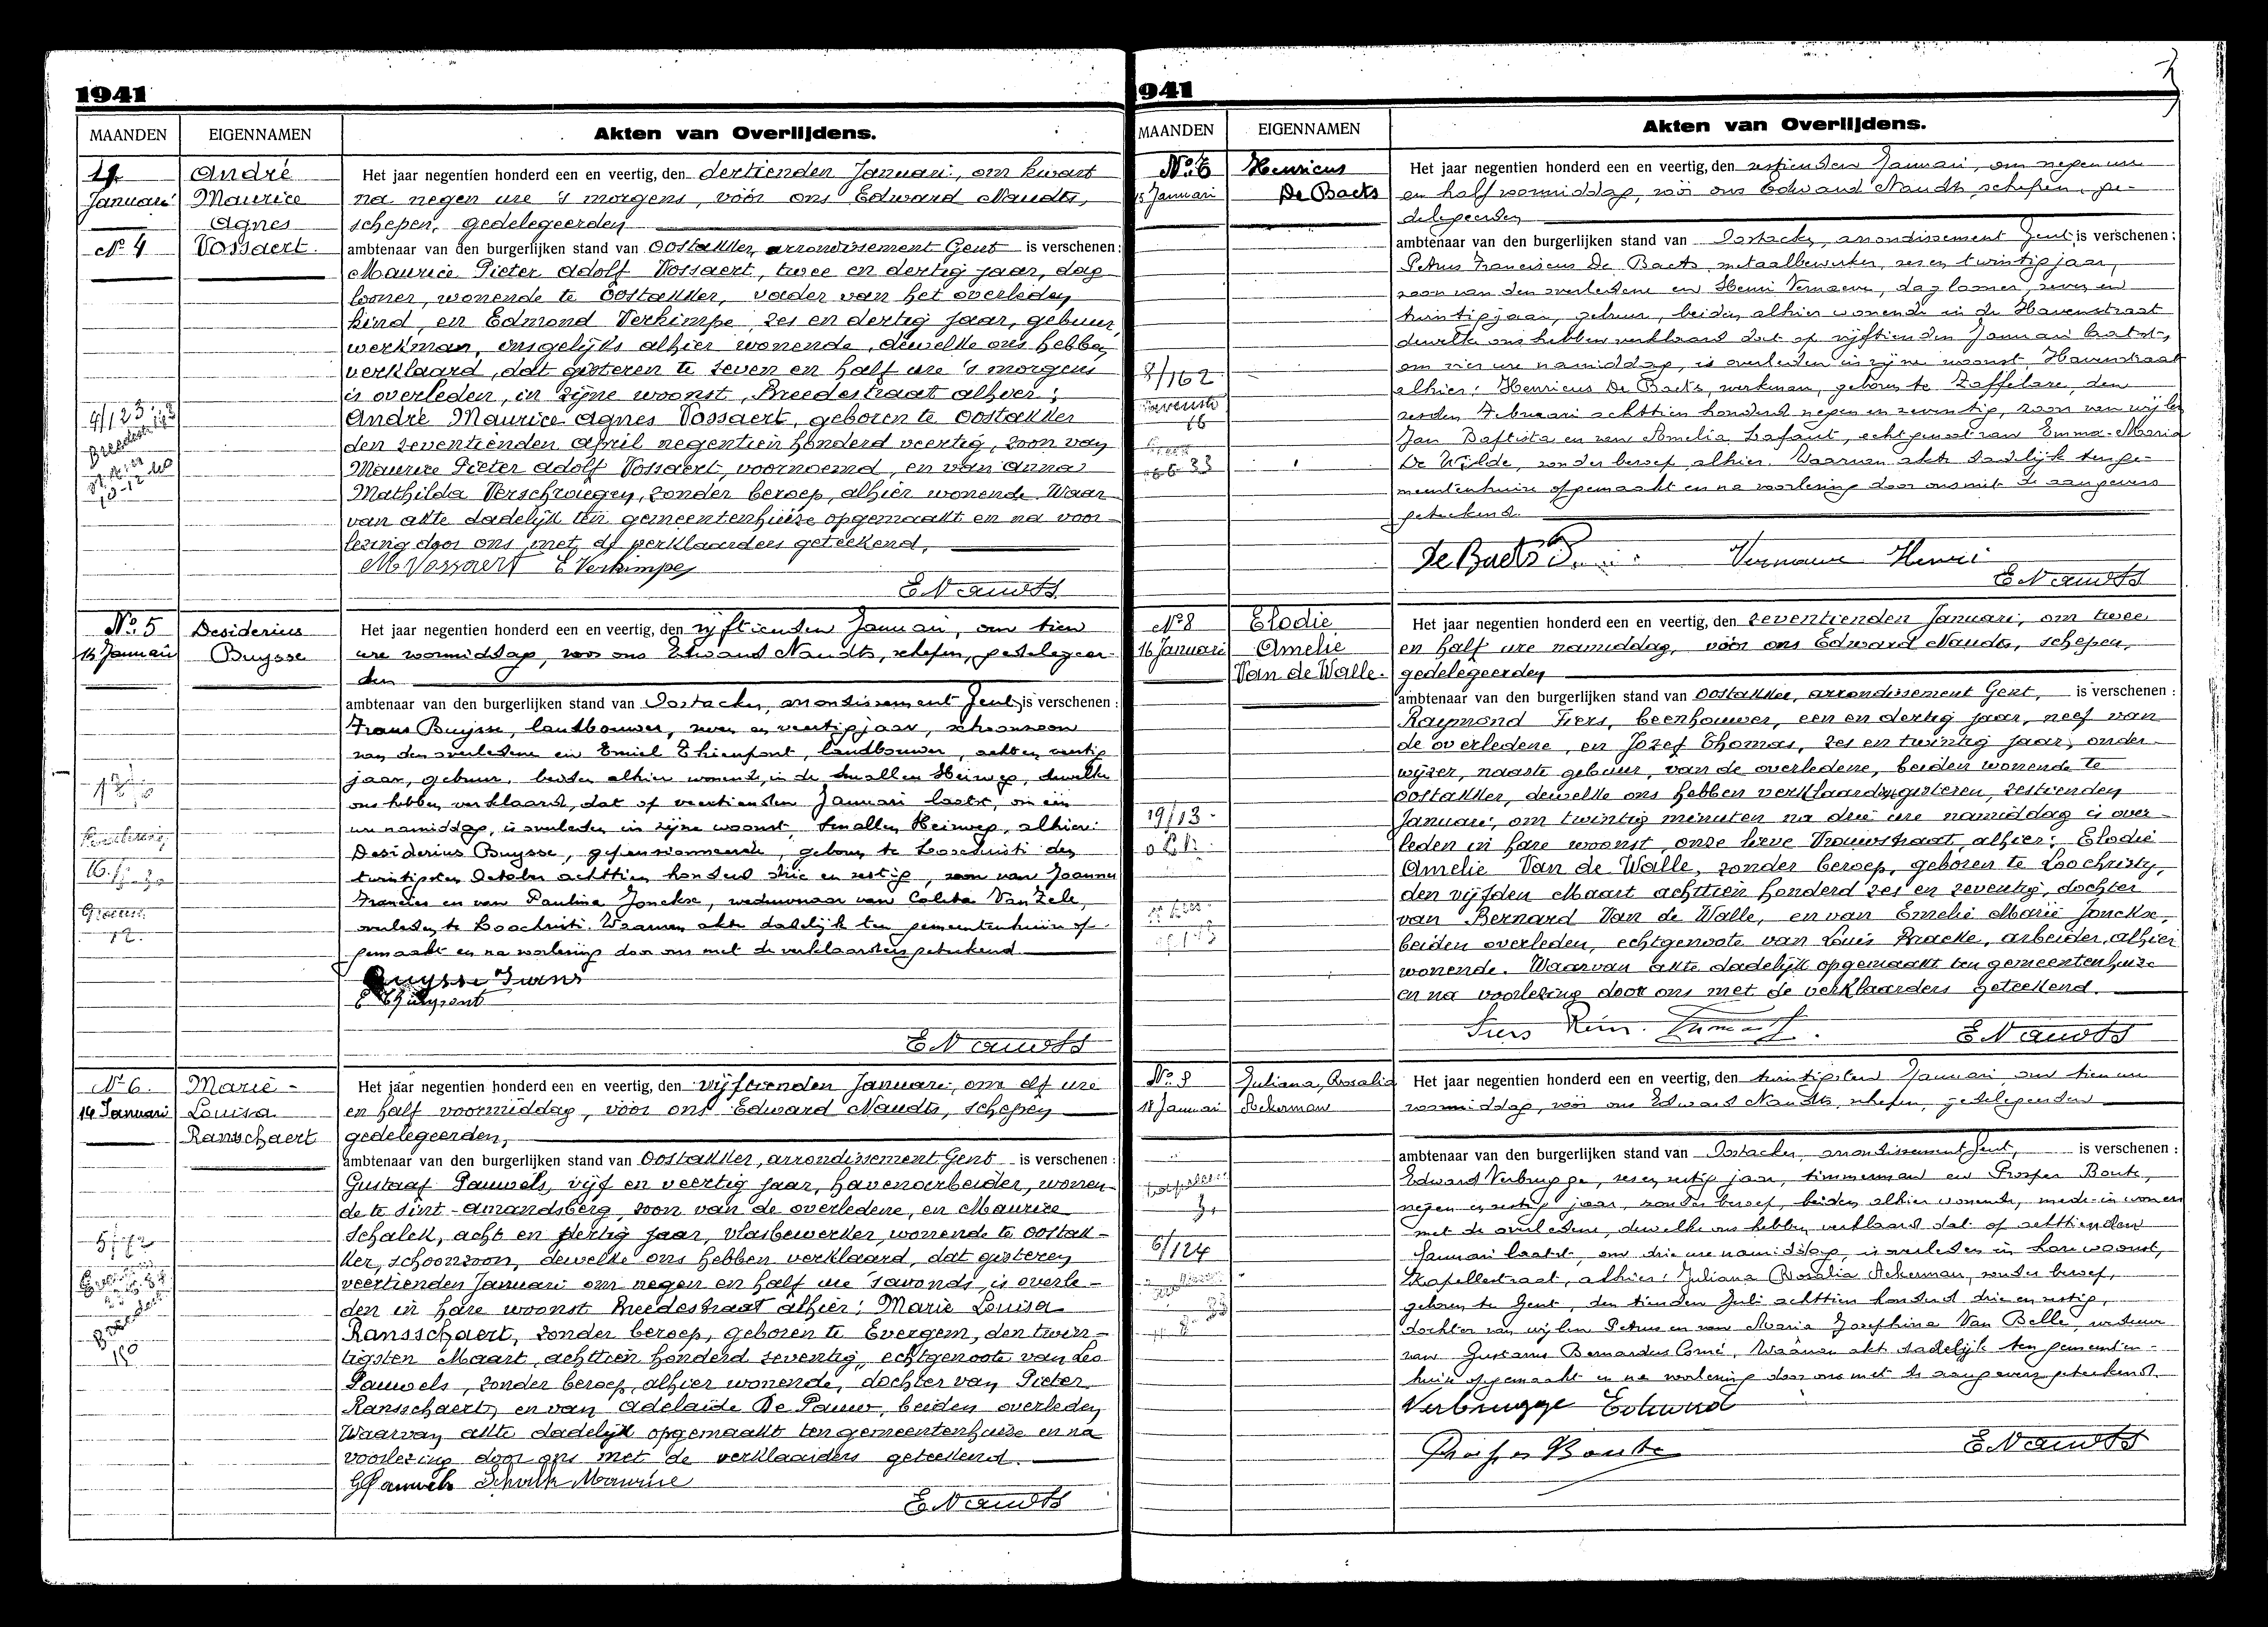 1941
MAANDEN EIGENNAMEN Akten van Overlijdens.
Januari
Nº 4
André
Maurice
Agnes
Vossaert.
Het jaar negentien honderd een en veertig, den dertienden Januari, om kwart
na negen ure 's morgens, vóór ons Edward Naudts,
schepen, gedelegeerden
ambtenaar van den burgerlijken stand van Oostakker, arrondissement Gent is verschenen:
Maurice Pieter Adolf Vossaert, twee en dertig jaar, dag
looner, wonende te Oostakker, vader van het overleden
kind, en Edmond Verkimpe, zes en dertig jaar, gebuur,
werkman, insgelijks alhier wonende, dewelke ons hebben
verklaard, dat gisteren te zeven en half ure 's morgens
is overleden, in zijne woonst, Breedestraat alhier:
André Maurice Agnes Vossaert, geboren te Oostakker
den zeventienden April negentien honderd veertig, zoon van
Maurice Pieter Adolf Vossaert, voornoemd, en van Anna
Mathilda Verschraegen, zonder beroep, alhier wonende. Waar
van akte dadelijk ten gemeentenhuize opgemaakt en na voor
lezing door ons met de verklaarders geteekend,
M Vossaert E Verkimpe
E Naudts
4/123
Nº 5
15 Januari
Desiderius
Buysse
Het jaar negentien honderd een en veertig, den vijftienden Januari, om tien
ure voormiddag, voor ons Edward Naudts, schepen, gedelegeer
den
ambtenaar van den burgerlijken stand van Oostacker, arrondissement Gent, is verschenen:
Frans Buysse, landbouwer, zeven en veertig jaar, schoonzoon
van den overledene en Emiel Thienpont, landbouwer, acht en veertig
jaar, gebuur, beiden alhier wonende, in de Smallen Heirweg, dewelke
ons hebben verklaard, dat op veertienden Januari laatst, om één
ure namiddag, is overleden in zijne woonst, Smallen Heirweg, alhier:
Desiderius Buysse, gepensionneerde, geboren te Loochristi den
twintigsten October achttien honderd drie en zestig, zoon van Joannes
Francies en van Paulina Jonckxe, weduwnaar van Coleta Van Zele,
overleden te Loochristi. Waarvan akte dadelijk ten gemeentenhuize op-
gemaakt en na voorlezing door ons met de verklaarders geteekend
Buysse Frans
E Thienpont
E Naudts
12.
Nº 6.
14 Januari
Marie-
Louisa
Ransschaert
Het jaar negentien honderd een en veertig, den vijftienden Januari, om elf ure
en half voormiddag, vóór ons Edward Naudts, schepen
gedelegeerden,
ambtenaar van den burgerlijken stand van Oostakker, arrondissement Gent is verschenen:
Gustaaf Pauwels, vijf en veertig jaar, havenarbeider, wonen-
de te Sint-Amandsberg, zoon van de overledene, en Maurice
Schalck, acht en dertig jaar, vlasbewerker, wonende te Oostak-
ker, schoonzoon, dewelke ons hebben verklaard, dat gisteren
veertienden Januari om negen en half ure 's avonds, is overle-
den in hare woonst Breedestraat alhier: Marie Louisa
Ransschaert, zonder beroep, geboren te Evergem, den twin-
tigsten Maart, achttien honderd zeventig, echtgenoote van Leo
Pauwels, zonder beroep, alhier wonende, dochter van Pieter
Ransschaert, en van Adelaïde De Pauw, beiden overleden
Waarvan akte dadelijk opgemaakt ten gemeentenhuize en na
voorlezing door ons met de verklaarders geteekend.
G Pauwels Schalk Maurice
E Naudts
941
MAANDEN EIGENNAMEN Akten van Overlijdens.
15 Januari
Henricus
De Baets
Het jaar negentien honderd een en veertig, den zestienden Januari, om negen ure
en half voormiddag, vóór ons Edward Naudts, schepen, ge-
delegeerden
ambtenaar van den burgerlijken stand van Oostacker, arrondissement Gent, is verschenen:
Petrus Franciscus De Baets, metaalbewerker, zes en twintig jaar,
zoon van den overledene en Henri Vernaeve, daglooner, zeven en
twintig jaar, gebuur, beiden alhier wonende in de Havenstraat
dewelke ons hebben verklaard dat op vijftienden Januari laatst,
om vier ure namiddag, is overleden in zijne woonst, Havenstraat
alhier: Henricus De Baets, werkman, geboren te Zaffelare, den
zesden Februari achttien honderd negen en zeventig, zoon van wijlen
Jan Baptista en van Amelia Lafaut, echtgenoot van Emma-Maria
De Wilde, zonder beroep, alhier. Waarvan akte dadelijk ten ge-
meentenhuize opgemaakt en na voorlezing door ons met de aangevers
geteekend.
De Baets Vernauve Henri
E Naudts
8/162
16
Nº 8
16 Januari
Elodie
Amelie
Van de Walle.
Het jaar negentien honderd een en veertig, den zeventienden Januari, om twee
en half ure namiddag, vóór ons Edward Naudts, schepen,
gedelegeerden
ambtenaar van den burgerlijken stand van Oostakker, arrondissement Gent, is verschenen:
Raymond Fiers, beenhouwer, een en dertig jaar, neef van
de overledene, en Jozef Thomas, zes en twintig jaar, onder-
wijzer, naaste gebuur, van de overledene, beiden wonende te
Oostakker, dewelke ons hebben verklaard gisteren, zestienden
Januari, om twintig minuten na drie ure namiddag is over-
leden in hare woonst, Onze Lieve Vrouwstraat, alhier: Elodie
Amelie Van de Walle, zonder beroep, geboren te Loochristy,
den vijfden Maart achttien honderd zes en zeventig, dochter
van Bernard Van de Walle, en van Emelie Marie Jonckxe,
beiden overleden, echtgenoote van Louis Bracke, arbeider, alhier
wonende. Waarvan akte dadelijk opgemaakt ten gemeentenhuize
en na voorlezing door ons met de verklaarders geteekend.
Fiers
E Naudts
19/13
Nº 9
18 Januari
Juliana, Rosalia
Ackerman
Het jaar negentien honderd een en veertig, den twintigsten Januari, om tien ure
voormiddag, vóór ons Edward Naudts, schepen, gedelegeerden
ambtenaar van den burgerlijken stand van Oostacker, arrondissement Gent, is verschenen:
Edward Verbrugge, zes en zestig jaar, timmerman en Prosper Bonte,
negen en zestig jaar, zonder beroep, beiden alhier wonende, mede-inwoners
met de overledene, dewelke ons hebben verklaard dat op achttienden
Januari laatst, om drie ure namiddag, is overleden in hare woonst,
alhier: Juliana Rosalia Ackerman, zonder beroep,
geboren te Gent, den tienden Juli achttien honderd drie en zestig,
dochter van wijlen Petrus en van Maria Josephina Van Belle, weduwe
van Gustavus Bernardus Corné. Waarvan akte dadelijk ten gemeenten-
huize opgemaakt en na voorlezing door ons met de aangevers geteekend.
Verbrugge Edward
Prosper Bonte
E Naudts
6/124